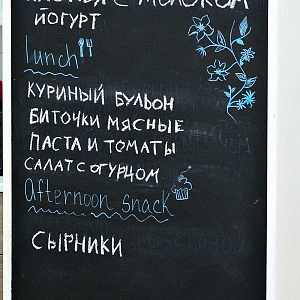 ХЛОПЬЯ С МОЛОКОМ
ЙОГУРТ
lunch
КУРИНЫЙ БУЛЬОН
БИТОЧКИ МЯСНЫЕ
ПАСТА И ТОМАТЫ
САЛАТ С ОГУРЦОМ
Afternoon snack
СЫРНИКИ